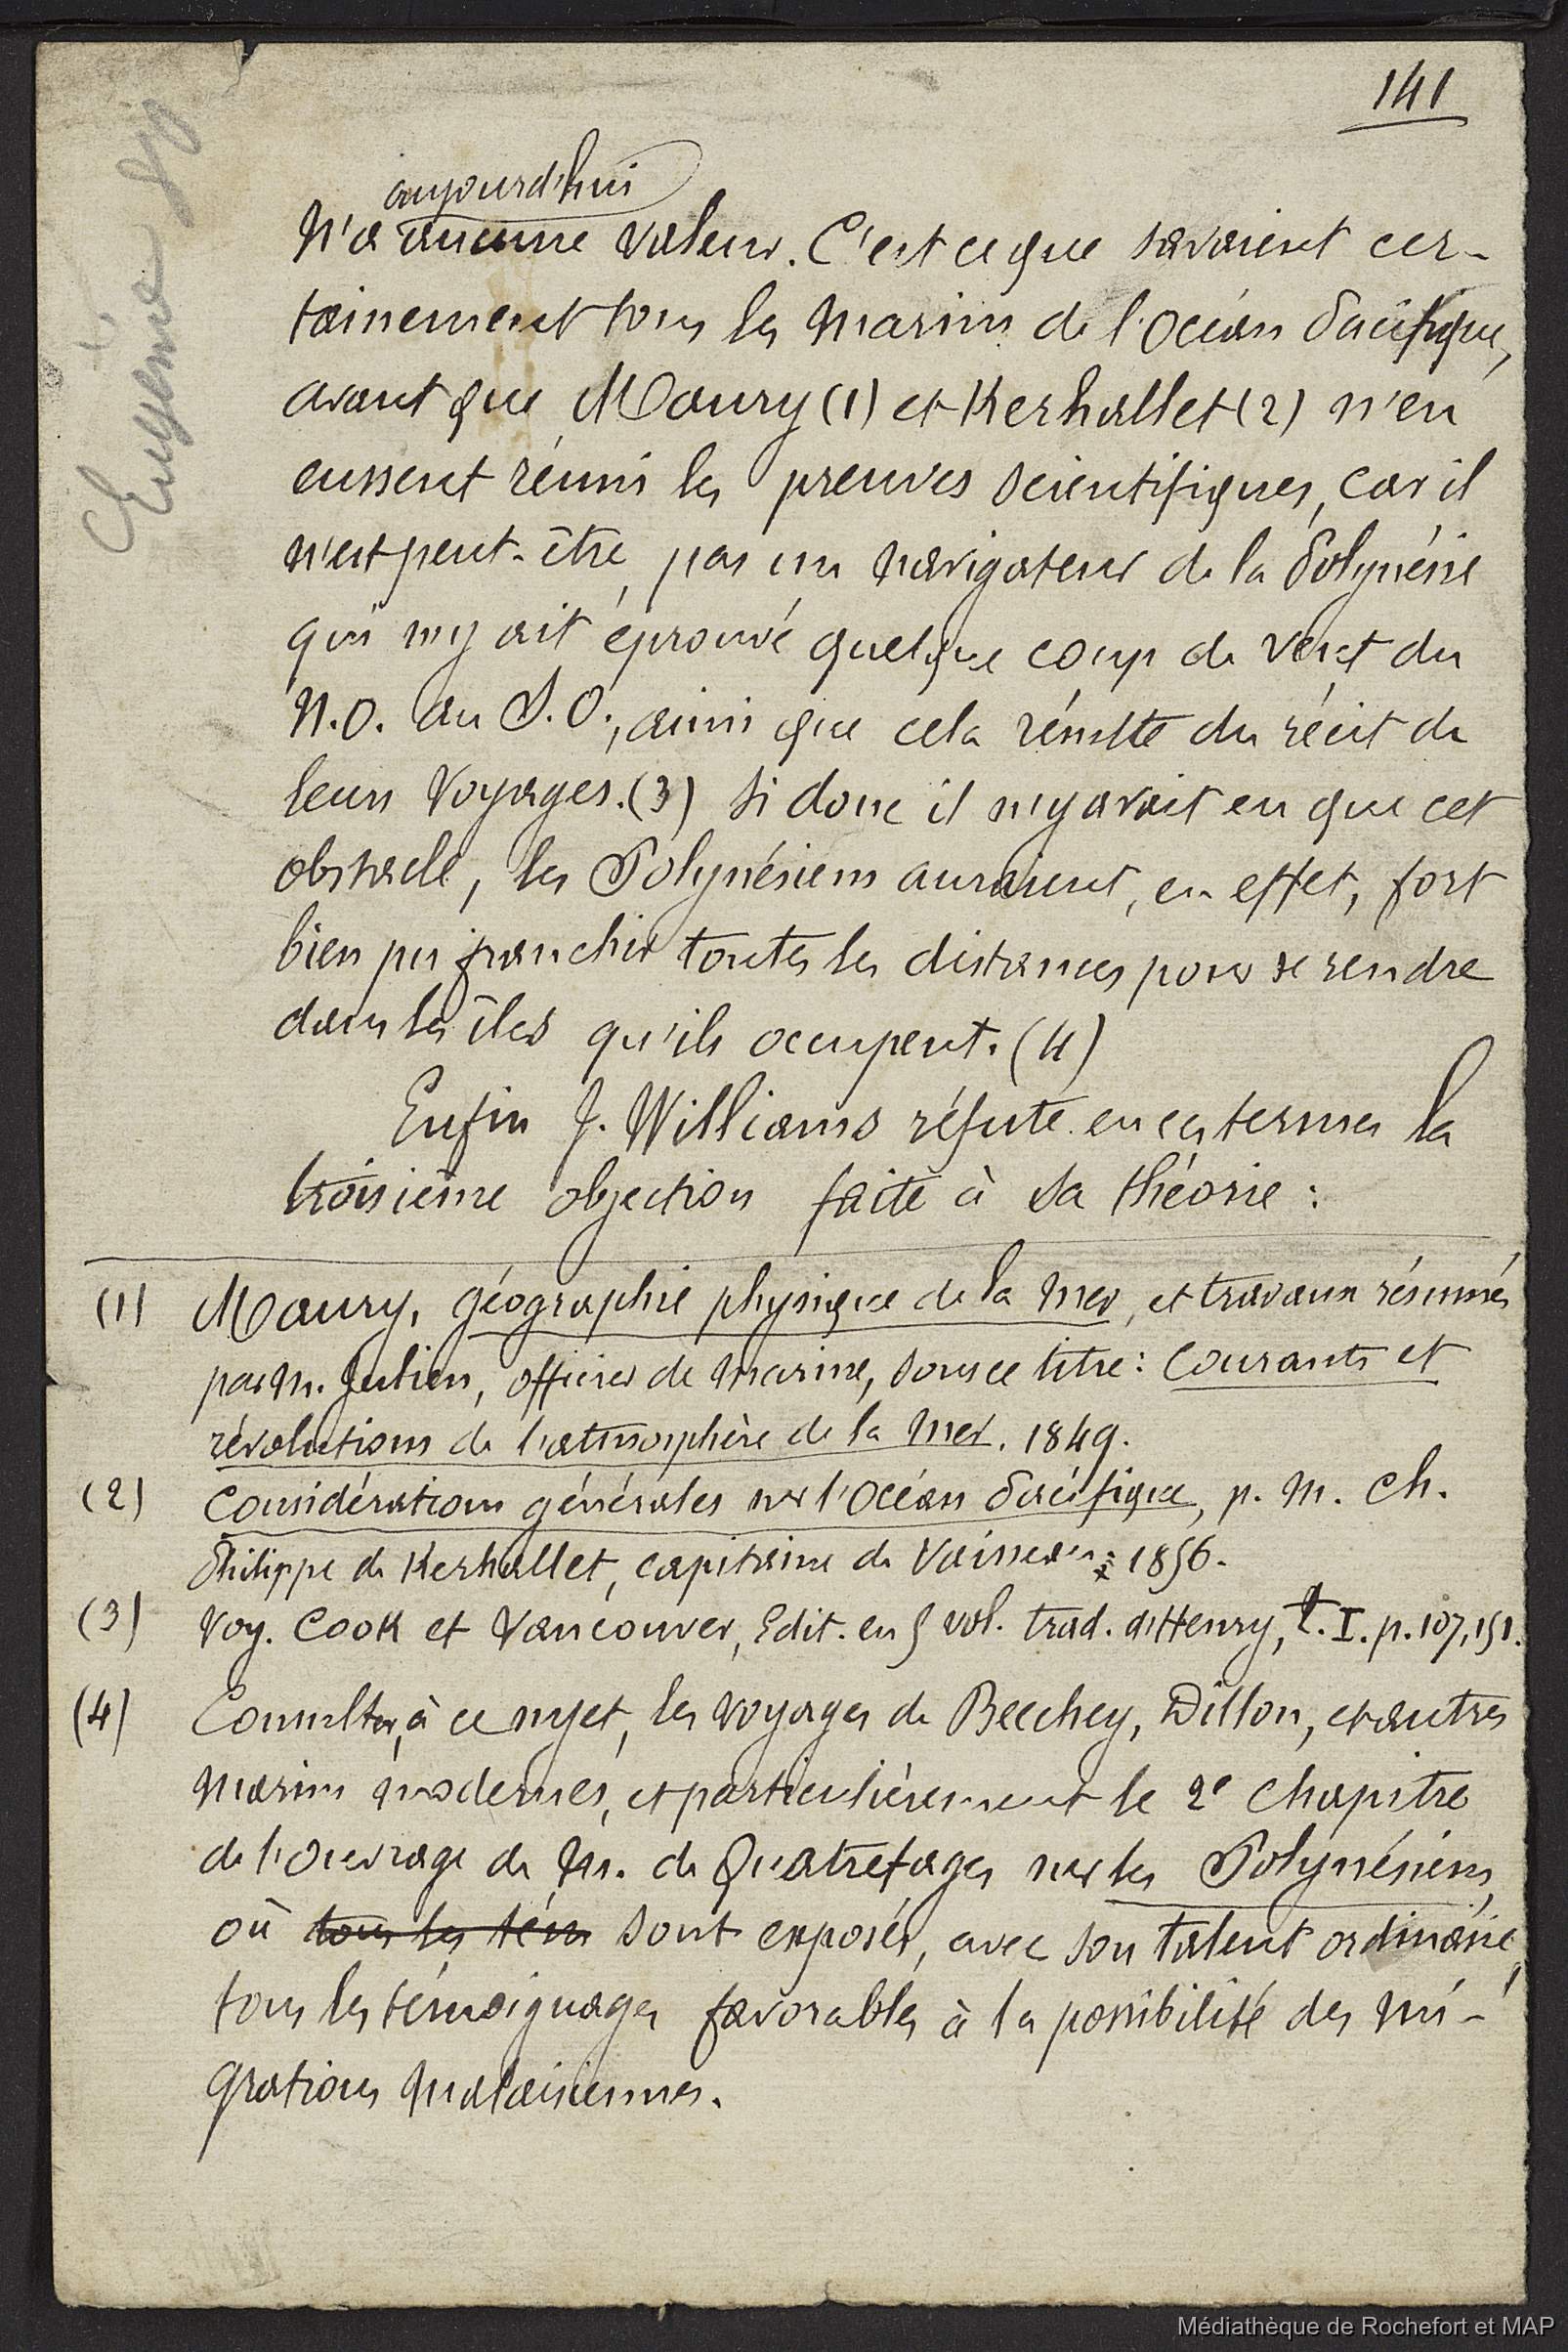 141
Eugénie 80
aujourd'hui
N'a aucune valeur. C'est ce que savaient cer-
tainement tous les marins de l'Océan Pacifique,
avant que Maury (1) et Kerhallet (2) n'en
eussent réuni les preuves scientifiques, car il
n'est peut-être pas un navigateur de la Polynésie
qui n'y ait éprouvé quelque coup de vent du
N.O. au S.O., ainsi que cela résulte du récit de
leurs voyages. (3) Si donc il n'y avait eu que cet
obstacle, les Polynésiens auraient, en effet, fort
bien pu franchir toutes les distances pour se rendre
dans les îles qu'ils occupent. (4)
Enfin J. Williams réfute en ces termes la
troisième objection faite à sa théorie :
(1) Maury, géographie physique de la mer, et travaux résumés
par M. Julien, officier de marine, sous ce titre : Courants et
révolutions de l'atmosphère de la mer. 1849.
(2) Considérations générales sur l'Océan Pacifique, p. M. Ch.
Philippe de Kerhallet, capitaine de vaisseau : 1856.
(3) Voy. Cook et Vancouver, Edit. en 5 vol. trad. d'Henry, t. I. p. 107, 151.
(4) Consulter, à ce sujet, les voyages de Beechey, Dillon, et autres
marins modernes, et particulièrement le 2e chapitre
de l'ouvrage de M. de Quatrefages sur les Polynésiens,
où tous les tém sont exposés, avec son talent ordinaire,
tous les témoignages favorables à la possibilité des mi-
grations malaisiennes.
Médiathèque de Rochefort et MAP